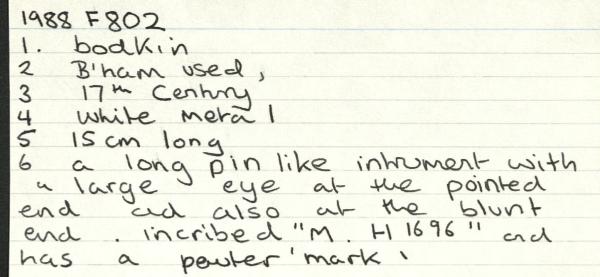 1988 F802
1. bodkin
2 B'ham used,
3 17th Century
4 white metal
5 15cm long
6 a long pin like intrument with
a large eye at the pointed
end and also at the blunt
end. incribed "M. H 1696" and
has a pewter 'mark'